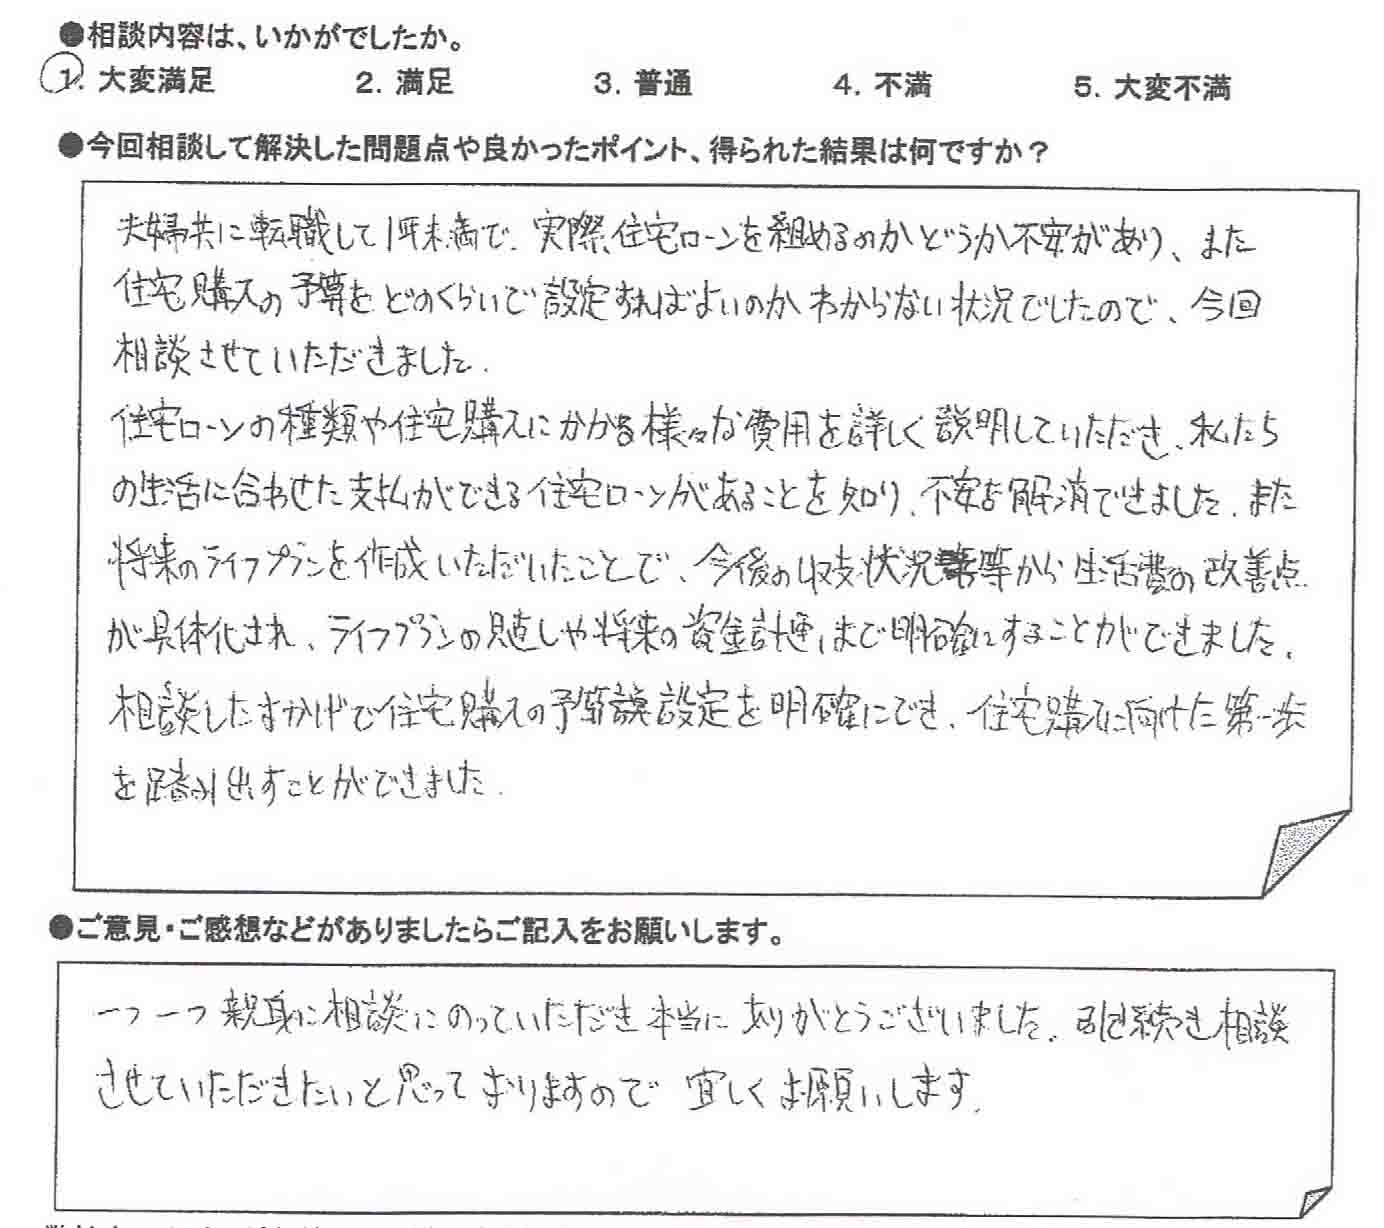 ●相談内容は、いかがでしたか。
1. 大変満足 2. 満足 3. 普通 4. 不満 5. 大変不満
●今回相談して解決した問題点や良かったポイント、得られた結果は何ですか？
夫婦共に転職して1年未満で、実際、住宅ローンを組めるのかどうか不安があり、また
住宅購入の予算をどのくらいで設定すればよいのかわからない状況でしたので、今回
相談させていただきました。
住宅ローンの種類や住宅購入にかかる様々な費用を詳しく説明していただき、私たち
の生活に合わせた支払ができる住宅ローンがあることを知り、不安を解消できました。また
将来のライフプランを作成いただいたことで、今後の収支状況等から生活費の改善点
が具体化され、ライフプランの見直しや将来の資金計画まで明確にすることができました。
相談したおかげで住宅購入の予算設定を明確にでき、住宅購入に向けた第一歩
を踏み出すことができました。
●ご意見・ご感想などがありましたらご記入をお願いします。
一つ一つ親身に相談にのっていただき本当にありがとうございました。引き続き相談
させていただきたいと思っておりますので宜しくお願いします。